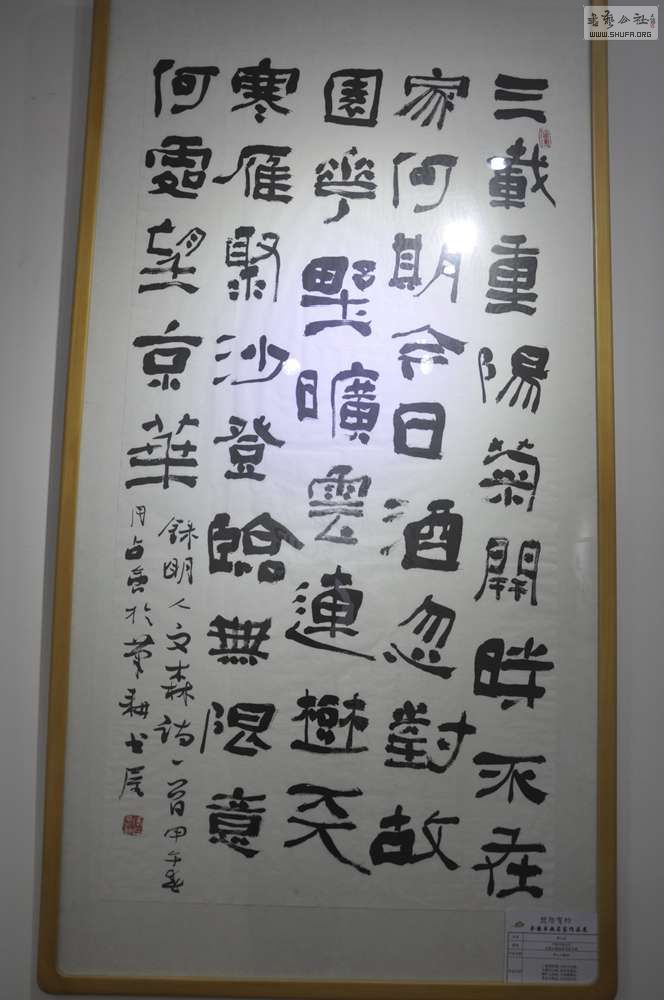 三載重陽菊開時不在
家何期今日酒忽對故
園華野曠雲連樹天
寒雁聚沙登臨無限意
何處望京華
録明人文森詩一首甲午春
占魯於耕书屋
书艺公社
WWW.SHUFA.ORG